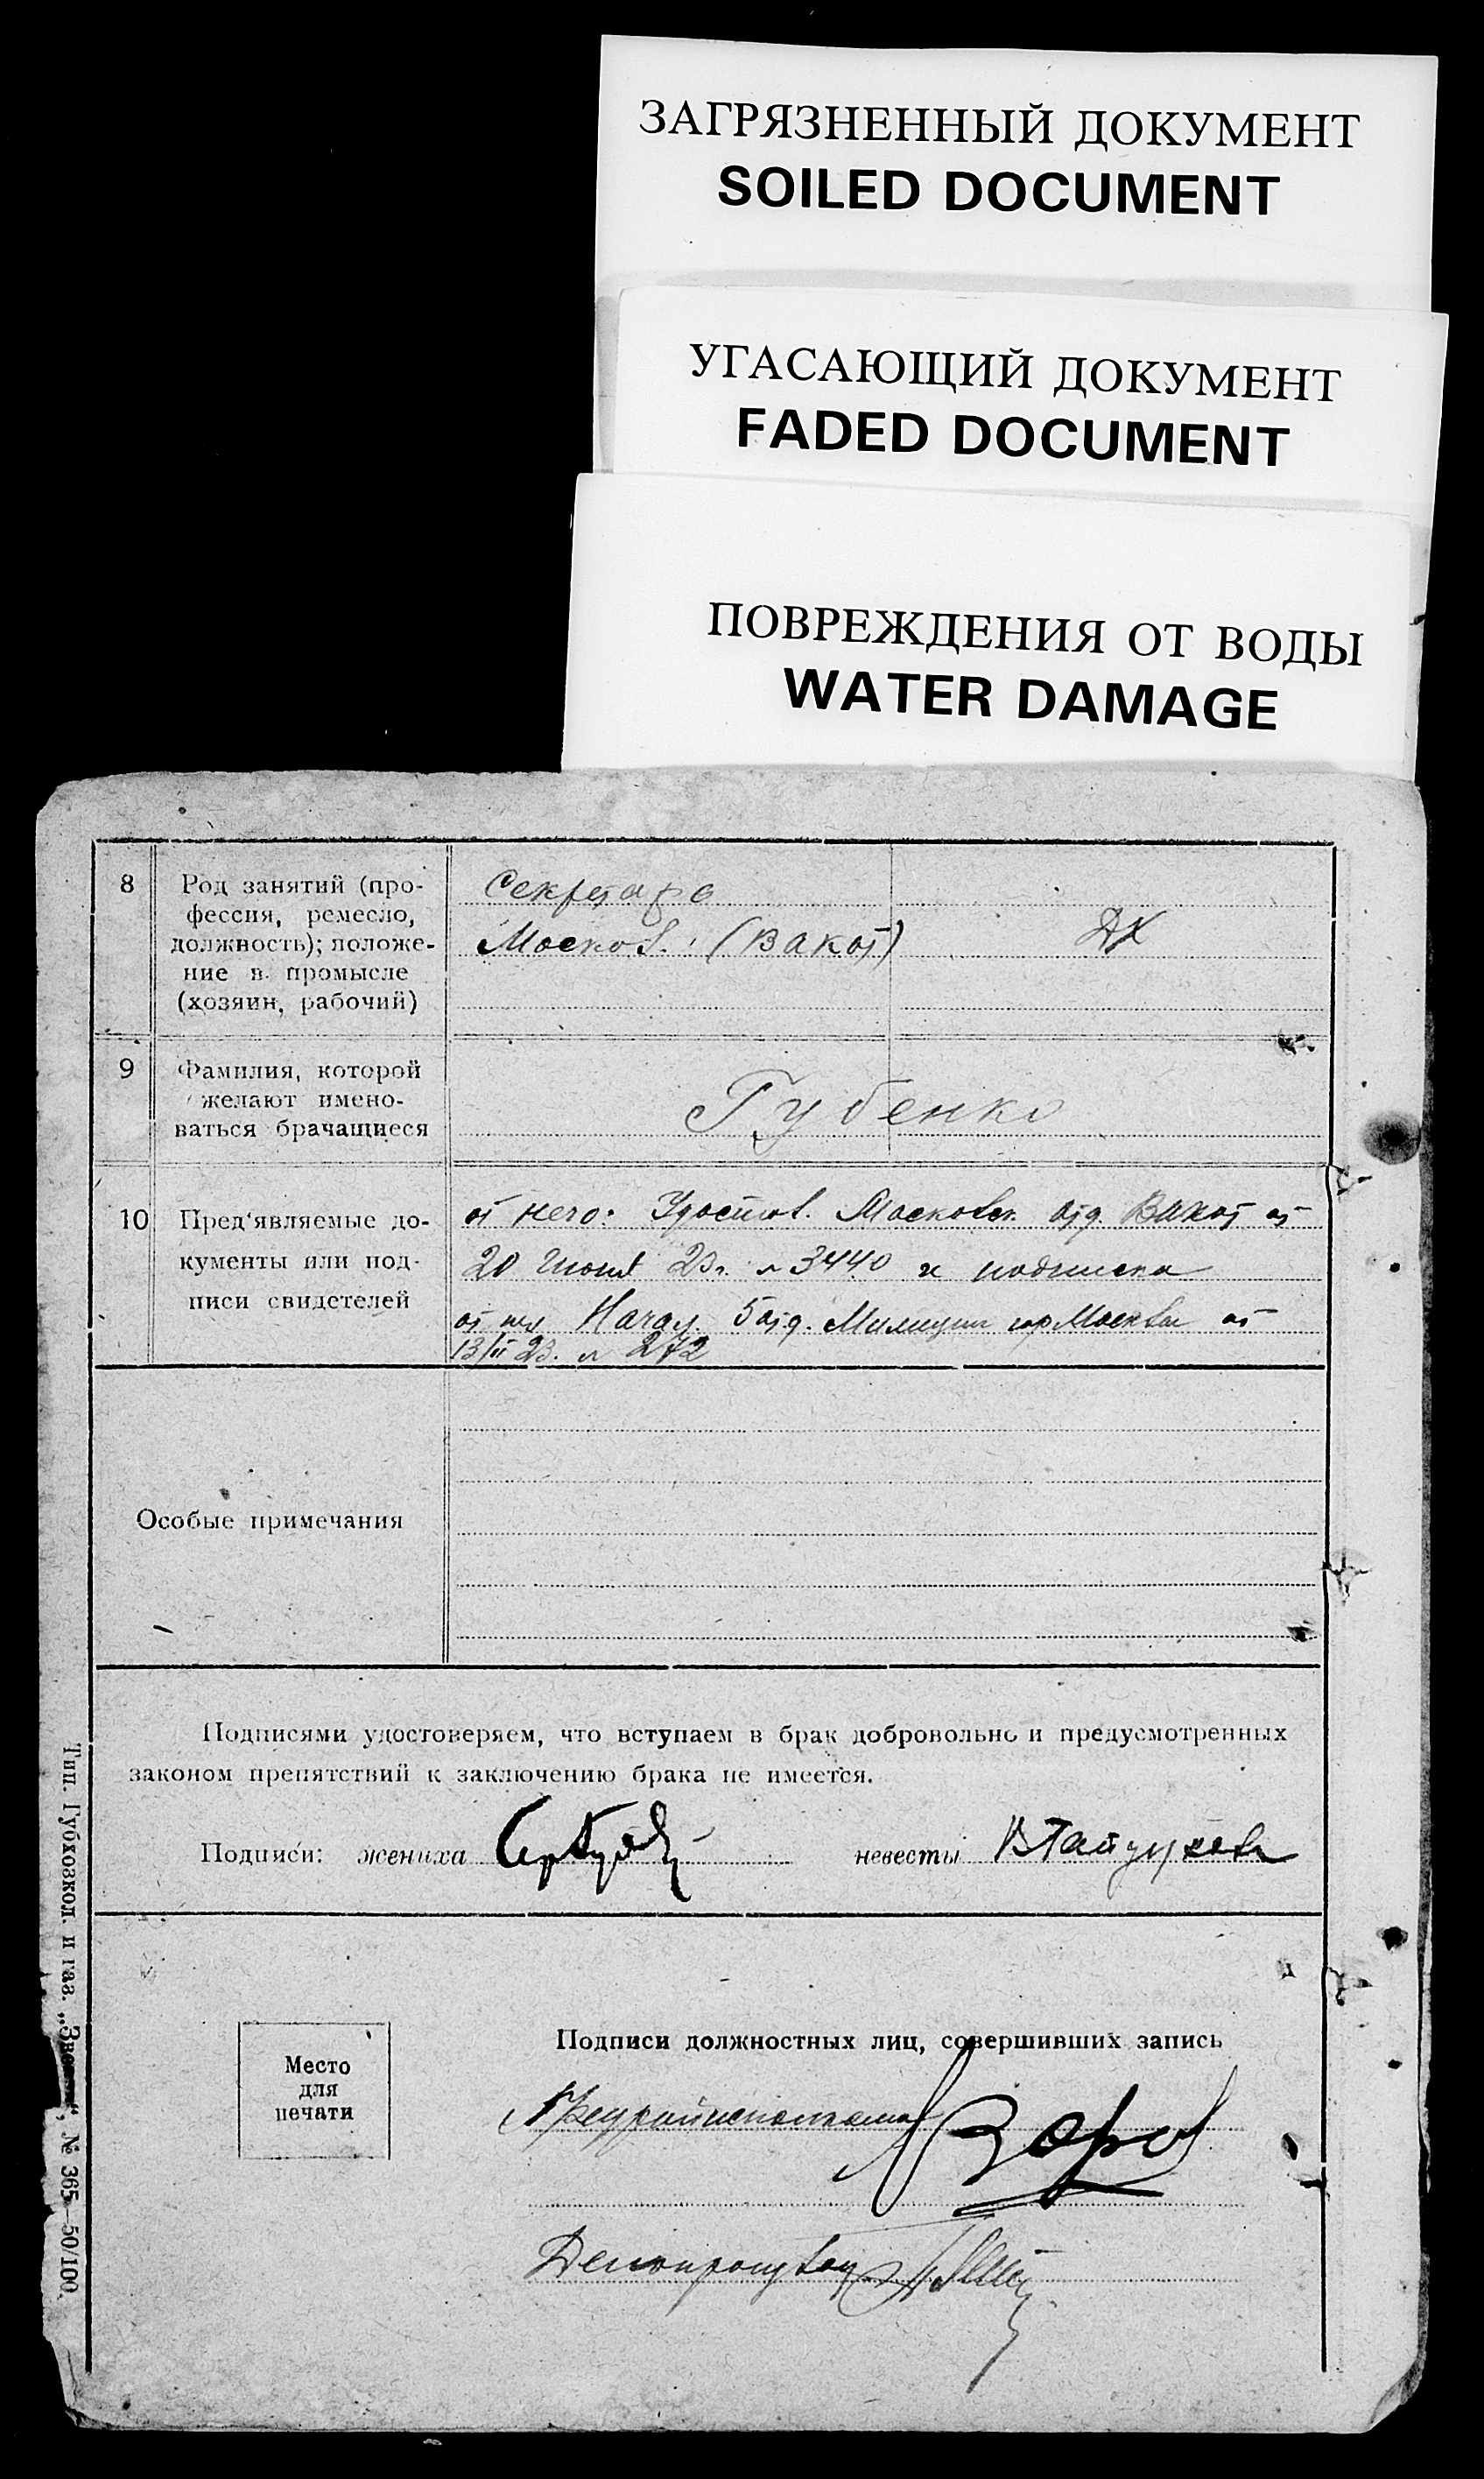 ЗАГРЯЗНЕННЫЙ ДОКУМЕНТ
SOILED DOCUMENT
УГАСАЮЩИЙ ДОКУМЕНТ
FADED DOCUMENT
ПОВРЕЖДЕНИЯ ОТ ВОДЫ
WATER DAMAGE
8
Род занятий (про-
фессия, ремесло,
должность); положе-
ние в промысле
(хозяин, рабочий)
Секретарь
Москов. (Вакот)
ДХ
9
Фамилия, которой
желают имено-
ваться брачащиеся
Губенко
10
Пред'являемые до-
кументы или под-
писи свидетелей
от него: Удостов. Московск. отд. Вакот от
20 Июня 23г. № 3440 и подписка
от нея Начал. 5 отд. Милиции гор Москвы от
13/II 23. № 272
Особые примечания
Подписями удостоверяем, что вступаем в брак добровольно и предусмотренных
законом препятствий к заключению брака не имеется.
Подписи: жениха
невесты
Место
для
печати
Подписи должностных лиц, совершивших запись
Предрайисполкома
Делопроизвод
Тип. Губхозкол. и газ. „Звезда“, № 365—50/100.